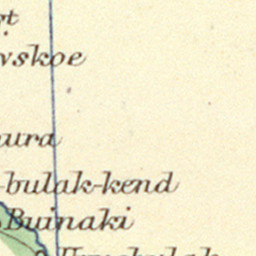 vskoe
ura
-bulak-kend
Buinaki